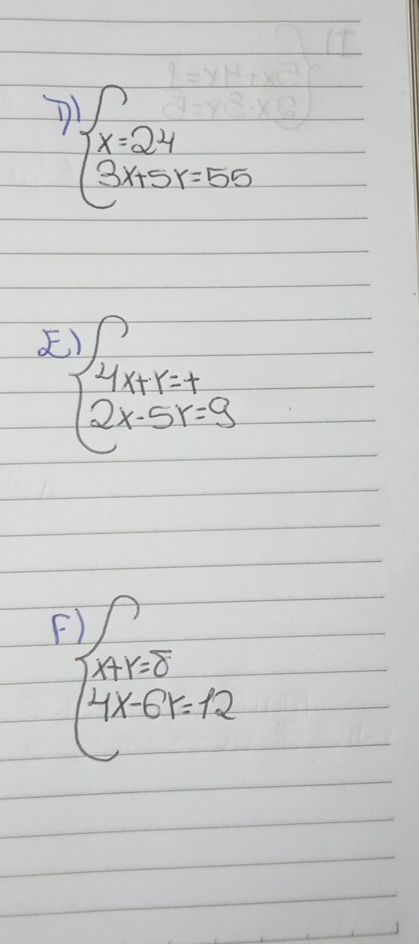 D)
x=24
3x+5y=55
E)
4x+y=+
2x-5y=9
F)
x+y=8
4x-6y=12